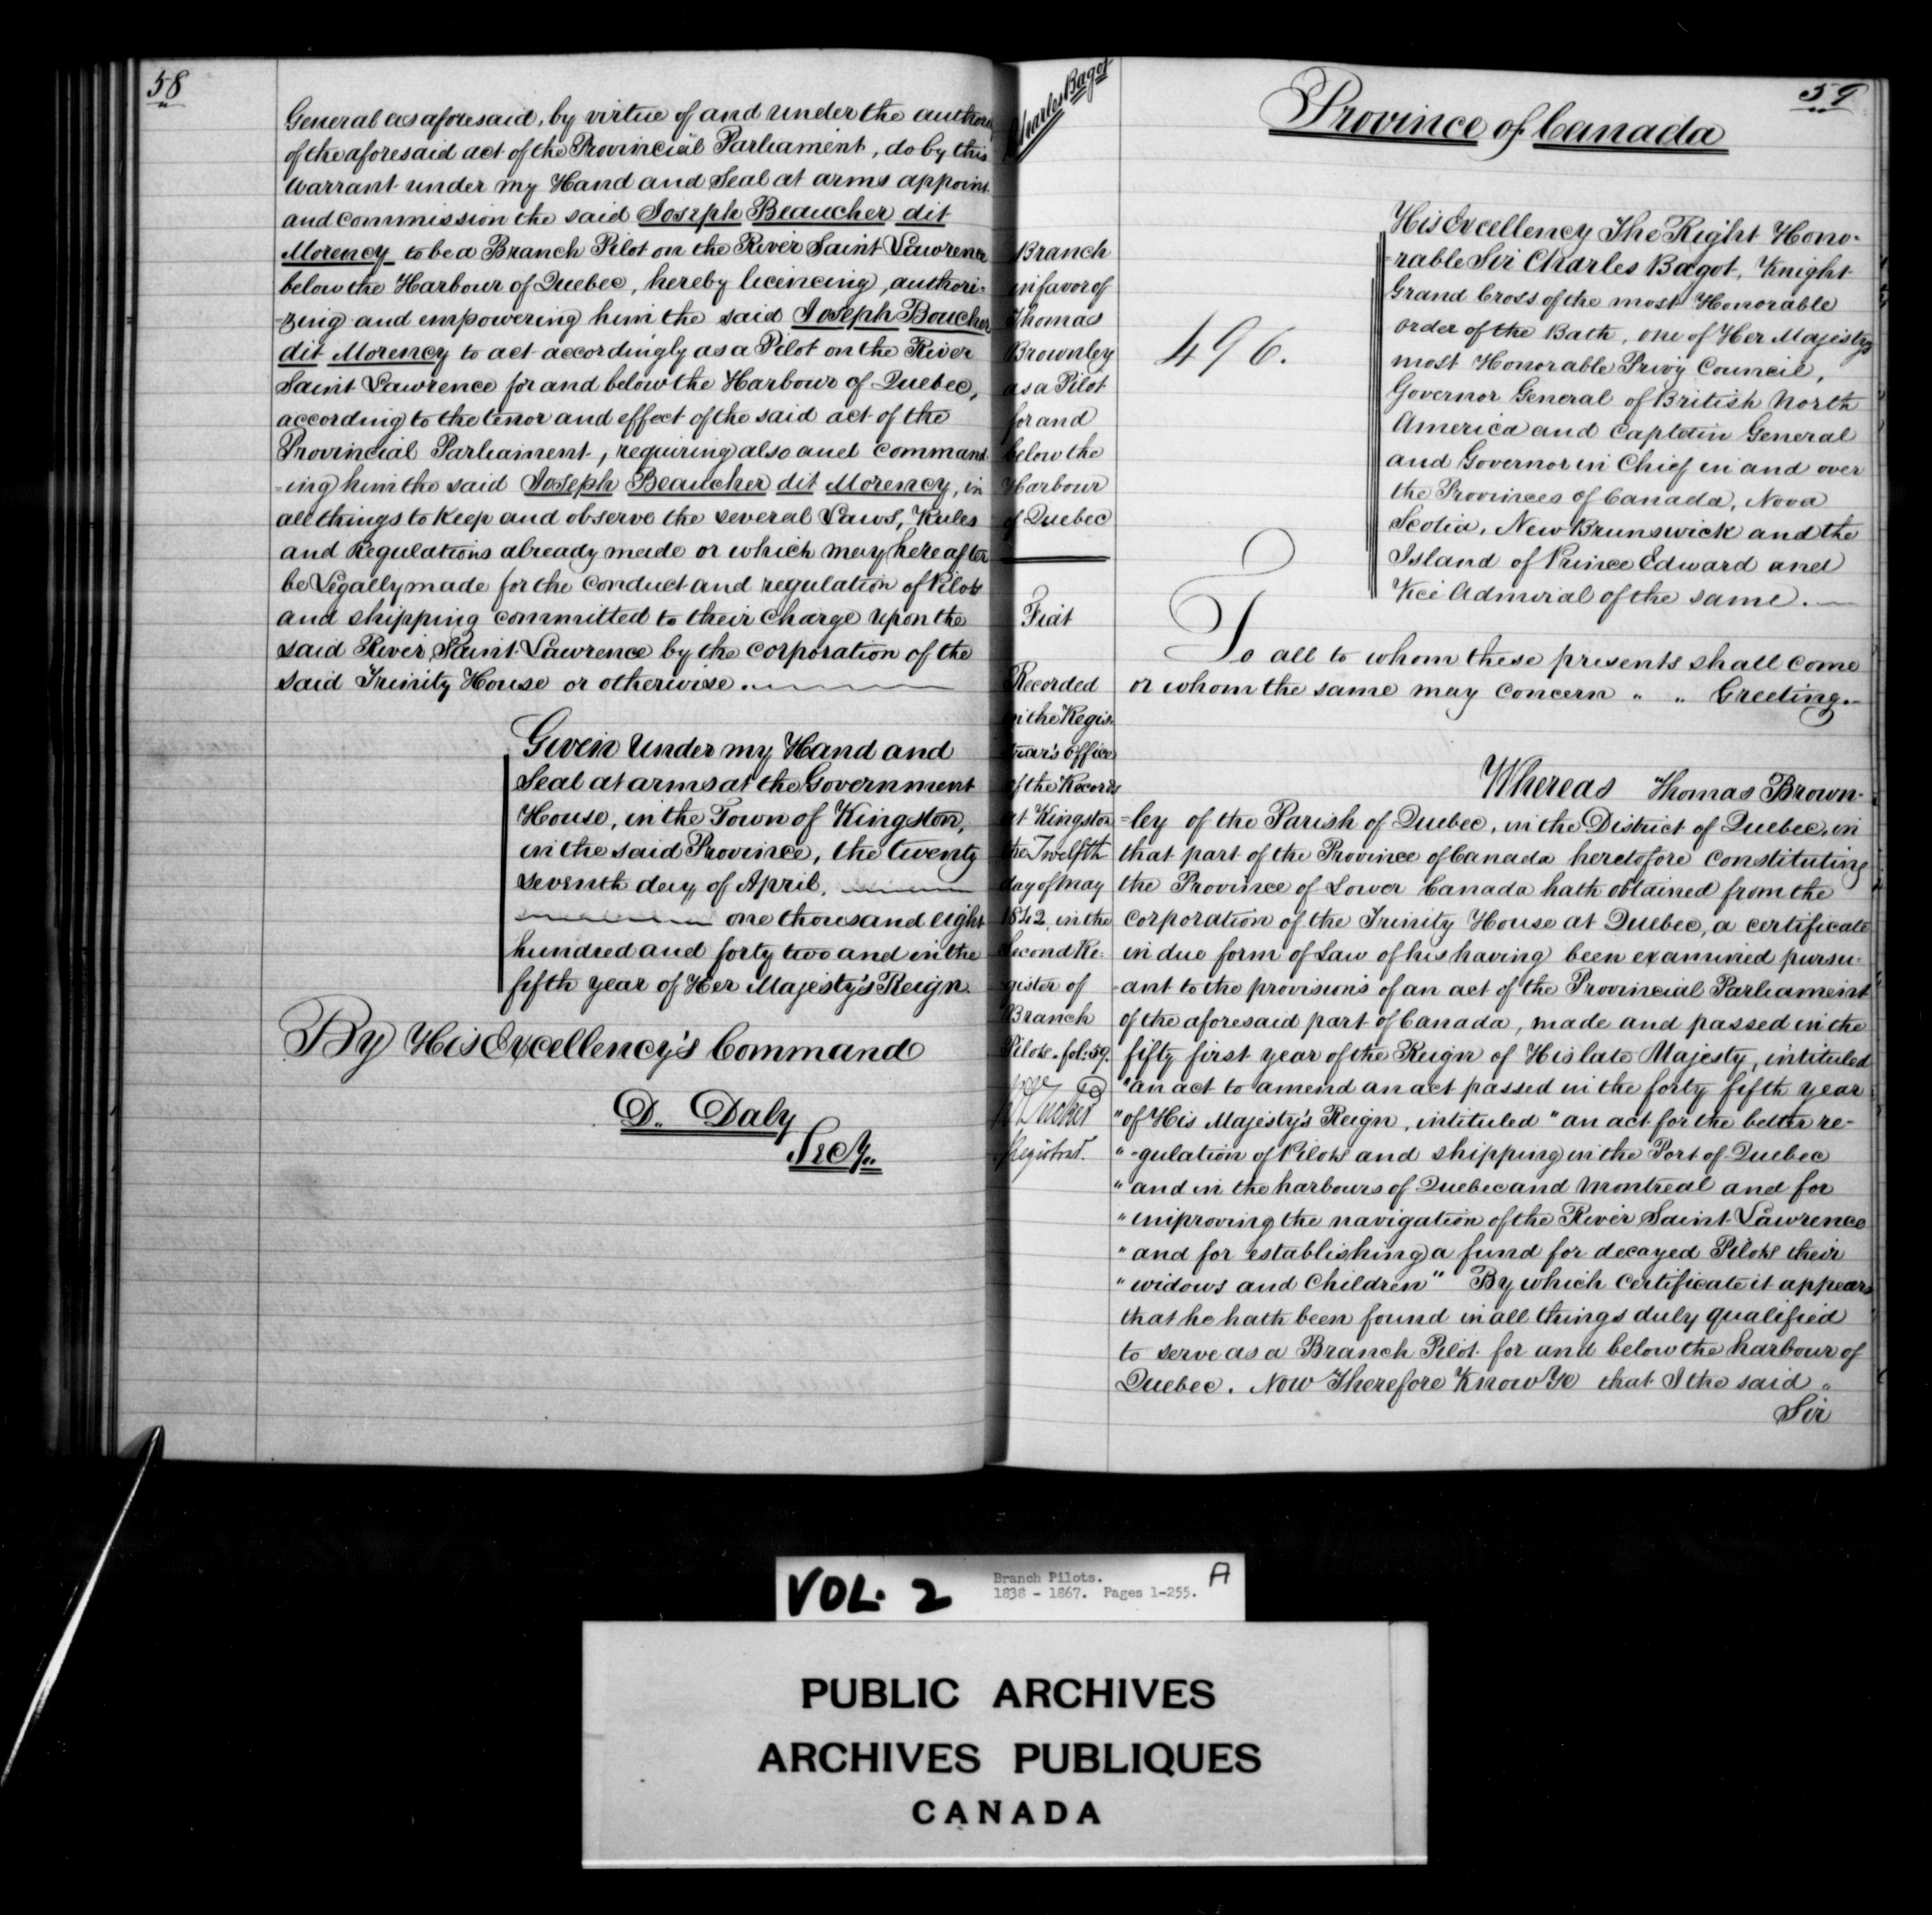 58
General as aforesaid, by virtue of and under the
of the aforesaid act of the Provincial Parliament, do by this
Warrant under my Hand and Seal at arms appoint
and commission the said Joseph Beaucher dit
Morency to be a Branch Pilot on the River Saint Lawrence
below the Harbour of Quebec, hereby licencing, authori-
-zing and empowering him the said Joseph Boucher
dit Morency to act accordingly as a Pilot on the River
Saint Lawrence for and below the Harbour of Quebec,
according to the tenor and effect of the said act of the
Provincial Parliament, requiring also and command
-ing him the said Joseph Beaucher dit Morency, in
all things to keep and observe the several Laws, Rules
and Regulations already made or which may hereafter
be Legally made for the conduct and regulation of Pilots
and shipping committed to their charge upon the
said River Saint Lawrence by the corporation of the
said Trinity House or otherwise.
Given under my Hand and
Seal at arms at the Government
House, in the Town of Kingston,
in the said Province, the twenty
seventh day of April,
one thousand eight
hundred and forty two and in the
fifth year of Her Majesty's Reign.
By His Excellency's Command
D. Daly
Secy.
Charles Bagot
Branch
in favor of
Thomas
Brownley
as a Pilot
for and
below the
Harbour
of Quebec
Fiat
Recorded
in the Regis-
trar's office
of the Records
at Kingston
the Twelfth
day of May
1842, in the
Second Re-
gister of
Branch
Pilots. fol: 59.
Tucker
Registrar.
59
Province of Canada
496.
His Excellency The Right Hono-
-rable Sir Charles Bagot, Knight
Grand Cross of the most Honorable
order of the Bath, one of Her Majesty's
most Honorable Privy Council,
Governor General of British North
America and Captain General
and Governor in Chief in and over
the Provinces of Canada, Nova
Scotia, New Brunswick and the
Island of Prince Edward and
Vice Admiral of the same.
To all to whom these presents shall come
or whom the same may concern " " Greeting.
Whereas Thomas Brown-
-ley of the Parish of Quebec, in the District of Quebec, in
that part of the Province of Canada heretofore constituting
the Province of Lower Canada hath obtained from the
corporation of the Trinity House at Quebec, a certificate
in due form of Law of his having been examined pursu-
-ant to the provisions of an act of the Provincial Parliament
of the aforesaid part of Canada, made and passed in the
fifty first year of the Reign of His late Majesty, intituled
"an act to amend an act passed in the forty fifth year
"of His Majesty's Reign, intituled "an act for the better re-
"-gulation of Pilots and shipping in the Port of Quebec
"and in the harbours of Quebec and Montreal and for
"improving the navigation of the River Saint Lawrence
"and for establishing a fund for decayed Pilots their
"widows and Children" By which certificate it appears
that he hath been found in all things duly qualified
to serve as a Branch Pilot for and below the harbour of
Quebec. Now Therefore Know Ye that I the said "
Sir
VOL. 2
Branch Pilots.
1838 - 1867. Pages 1-255.
A
PUBLIC ARCHIVES
ARCHIVES PUBLIQUES
CANADA